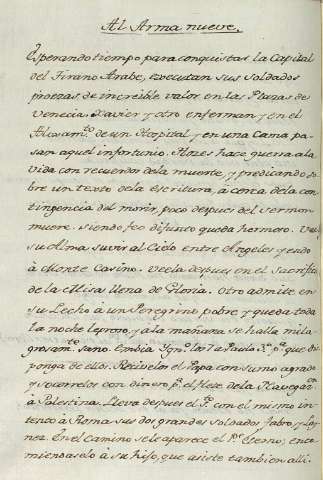 Al Arma nueve.
Esperando tiempo para conquistar la Capital
del Tirano Arabe, executan sus soldados
proezas de increible valor en las Plazas de
Venecia. Xavier y otro enferman y en el
Aloxam.to de un Hospital y en una Cama pa-
san aquel infortunio. Hozes hace guerra a la
vida con recuerdos de la muerte, y predicando so-
bre un texto de la escritura, à cerca de la con-
tingencia del morir, poco despues del sermon
muere. siendo feo difunto queda hermoso.
su Alma suvir al Cielo entre Angeles yendo
à Monte Casino. Veela despues en el Sacrificio
de la Misa llena de Gloria. Otro admite en
su Lecho à un Peregrino pobre y queda toda
la noche leproso, y a la mañana se halla mila
grosam.te sano. Embia Ygn.o los 7 a Paulo 3.o p.a que dis
ponga de ellos. Recivelos el Papa con sumo agrado
y socorrelos con dinero p.a el flete de la Navegaz.n
à Palestina. Lleva despues el S.to con el mismo in
tento à Roma sus dos grandes soldados, Fabro, y Lay
nez. En el camino se le aparece el P.e Eterno; enco
miendaselo à su hijo, que asiste tambien alli.